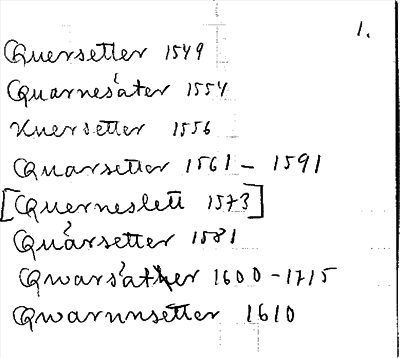 1.
Quersetter 1549
Quarnesáter 1554
Knersetter 1556
Quarsetter 1561 – 1591
[Querneslett 1573]
Quársetter 1581
Qwarsáther 1600 – 1715
Qwarnnsetter 1610